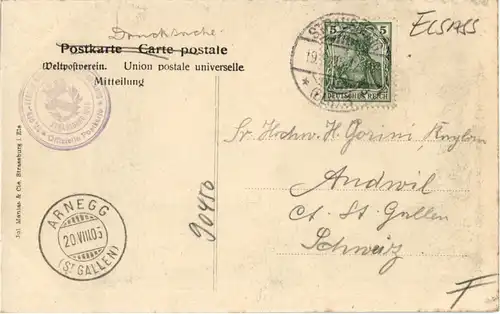 Drucksache
Postkarte - Carte postale
Weltpostverein. Union postale universelle.
Mitteilung
ELSASS
5 5
DEUTSCHES REICH
Offizielle Postkarte
Jul. Manias & Cie. Strassburg i. Els
ARNEGG
20 VIII 05
(ST. GALLEN)
90410
Sr. Hochw. H. Gorini
Andwil
Ct. St. Gallen
Schweiz
F